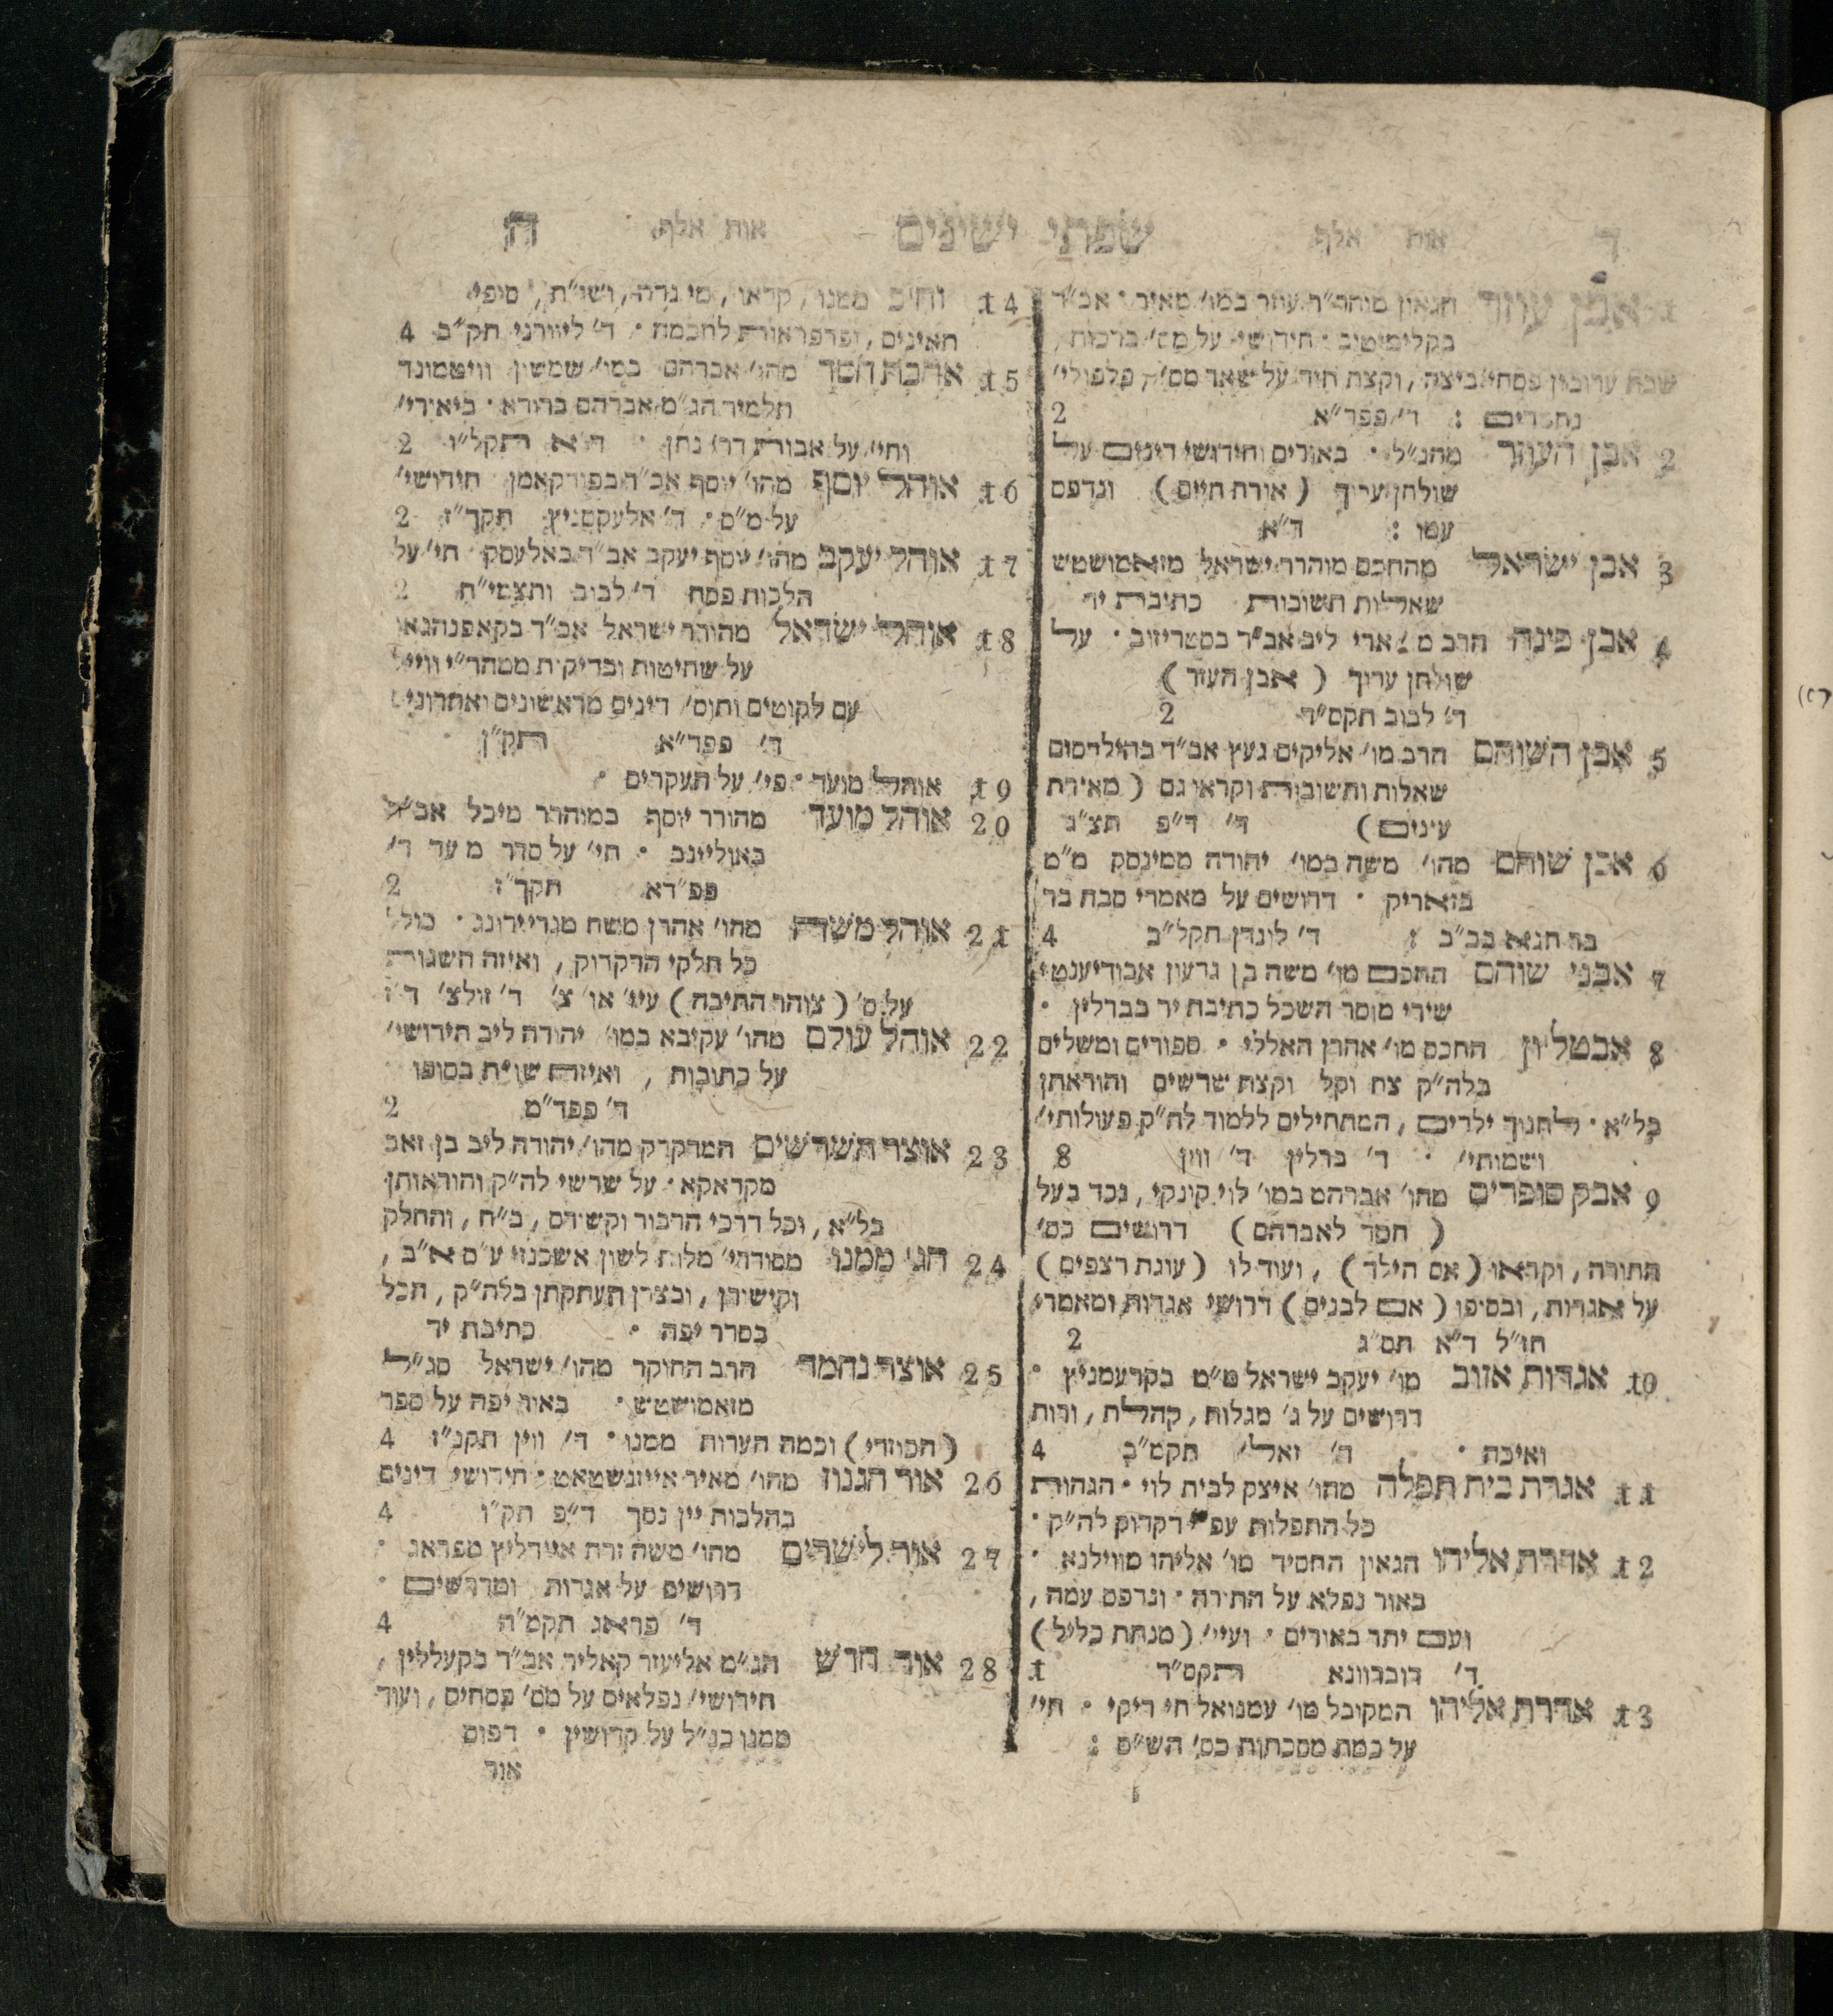 ד אות אלף שפתי ישינים אות אלף ה
1 אבן עוזר הגאון מוהר״ר עוזר במו׳ מאיר ׳ אב״ד
בקלימיטיב ׳ חידושי על מס׳ ברכות ,
שבת ערובין פסחי׳ ביצה , וקצת חיד׳ על שאר מס׳ , פלפולי׳
נחמדים : ד׳ פפר״א 2
2 אבן העוזר מהנ״ל ׳ באורים וחידושי דינים על
שולחן ערוך ( אורח חיים ) ונדפס
עמו : ד״א
3 אבן ישראל מהחכם מוהרר ישראל מזאמושטש
שאלות תשובות כתיבת יד
4 אבן פינה הרב מ׳ ארי ליב אב״ד בסטריזוב ׳ על
שולחן ערוך ( אבן העזר )
ד׳ לבוב תקס״ד 2
5 אבן השוהם הרב מו׳ אליקים געץ אב״ד בהילדסום
שאלות ותשובות וקראו גם ( מאירת
עינים ) ד׳ ד״פ תצ״ג
6 אבן שוהם מהו׳ משה במו׳ יהודה ממינסק מ״מ
בזאריק ׳ דרושים על מאמרי סבח בר
בר חנא בב״ב : ד׳ לונדן תקל״ב 4
7 אבני שוהם החכם מו׳ משה בן גדעון אבודיענטי
שירי מוסר השכל כתיבת יד בברלין ׳
8 אבטליון החכם מו׳ אהרן האללי ׳ ספורים ומשלים
בלה״ק צח וקל וקצת שרשים והוראתן
בל״א ׳ לחנוך ילדים , המתחילים ללמוד לה״ק פעולותי׳
ושמותי׳ ׳ ד׳ ברלין ד׳ ווין 8
9 אבק סופרים מהו׳ אברהם במו׳ לוי קונקי , נכד בעל
( חסד לאברהם ) דרושים בס׳
התורה , וקראו ( אם הילד ) , ועוד לו ( עוגת רצפים )
על אגדות , ובסיפו ( אם לבנים ) דרושי אגדות ומאמרי
חז״ל ד״א תס״ג 2
10 אגדות אזוב מו׳ יעקב ישראל מ״מ בקרעמניץ ׳
דרושים על ג׳ מגלות , קהלת , ורות
ואיכה ׳ ד׳ זאל׳ תקמ״ב 4
11 אגרת בית תפלה מהו׳ איצק לבית לוי ׳ הגהות
כל התפלות עפ״י דקדוק לה״ק ׳
12 אדרת אליהו הגאון החסיד מו׳ אליהו מווילנא ׳
באור נפלא על התורה ׳ ונדפס עמה ,
ועם יתר באורים ׳ ועיי׳ ( מנחת כליל )
ד׳ דובדוונא תקס״ד 1
13 אדרת אליהו המקובל מו׳ עמנואל חי ריקי ׳ חי׳
על כמה מסכתות בס׳ הש״ס :
14 וחיב ממנו , קראו , מי נדה , ושו״ת , סופי
תאינים , ופרפראות לחכמה ׳ ד׳ ליוורני תק״ב 4
15 אהבת חסד מהו׳ אברהם במו׳ שמשון וויטמונד
תלמיד הג״מ אברהם ברודא ׳ ביאורי׳
וחי׳ על אבות דר׳ נתן ׳ ד״א תקל״ז 2
16 אוהל יוסף מהו׳ יוסף אב״ד בפורקאמן חידושי׳
על מ״ס ׳ ד׳ אלעקסניץ תקך״ז 2
17 אוהל יעקב מהו׳ יוסף יעקב אב״ד באלעסק חי׳ על
הלכות פסח ד׳ לבוב 2
18 אוהל ישראל מהורר ישראל אב״ד בקאפנהגאן
על שחיטות ובדיקות ממהר״י ווייל
עם לקוטים ותוס׳ דינים מראשונים ואחרונים
ד׳ פפד״א תק״ן ׳
19 אוהל מועד ׳ פי׳ על העקרים ׳
20 אוהל מועד מהורר יוסף במוהרר מיכל אב״ד
באולייגב ׳ חי׳ על סדר מועד ד׳
פפ״דא תקך״ז 2
21 אוהל משה מהו׳ אהרן משה מגריידונג ׳ כולל
כל חלקי הדקדוק , ואיזה השגות
על ס׳ ( צוהר התיבה ) עיי׳ או׳ צ׳ ד׳ זולצ׳
22 אוהל עולם מהו׳ עקיבא במו׳ יהודה ליב חידושי׳
על כתובות , ואיזה שו״ת בסופו
ד׳ פפד״מ 2
23 אוצר השרשים המדקדק מהו׳ יהודה ליב בן זאב
מקראקא ׳ על שרשי לה״ק והוראותן
בל״א , וכל דרכי הדבור וקשודם , ב״ח , והחלק
24 הג׳ ממנו מסודתי׳ מלות לשון אשכנזי ע״ס א״ב ,
וקישורן , ובצרן העתקתן בלה״ק , הכל
בסדר יפה ׳ כתיבת יד
25 אוצר נחמד הרב החוקר מהו׳ ישראל סג״ל
מזאמושטש ׳ באור יפה על ספר
( הכוזרי ) וכמה הערות ממנו ׳ ד׳ ווין תקנ״ז 4
26 אור הגנוז מהו׳ מאיר אייזנשטאט ׳ חידושי דינים
בהלכות יין נסך ד״פ תק״ו 4
27 אור לישרים מהו׳ משה זרח אידליץ מפראג ׳
דרושים על אגדות ומדרשים ׳
ד׳ פראג תקמ״ה 4
28 אור חדש הג״מ אליעזר קאליר אב״ד בקעללין ,
חידושי׳ נפלאים על מס׳ פסחים , ועוד
ממנו כנ״ל על קדושין ׳ דפוס
אור